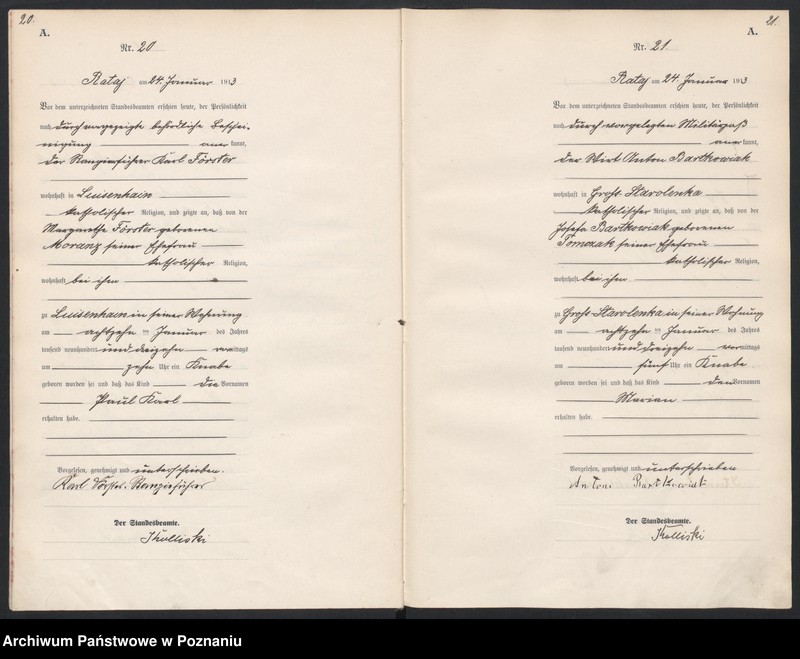 20.
A.
Nr. 20
Rataj am 24. Januar 1913
Vor dem unterzeichneten Standesbeamten erschien heute, der Persönlichkeit
nach durch vorgezeigte behördliche Beschei-
nigung aner kannt,
der Rangierführer Karl Förster
wohnhaft in Luisenhain
katholischer Religion, und zeigte an, daß von der
Margarethe Förster geborenen
Moranz seiner Ehefrau
katholischer Religion,
wohnhaft bei ihm
zu Luisenhain in seiner Wohnung
am achtzehn ten Januar des Jahres
tausend neunhundert und dreizehn vormittags
um zehn Uhr ein Knabe
geboren worden sei und daß das Kind die Vornamen
Paul Karl
erhalten habe.
Vorgelesen, genehmigt und unterschrieben.
Karl Förster. Rangierführer
Der Standesbeamte.
Kolliski
21.
A.
Nr. 21
Rataj am 24. Januar 1913
Vor dem unterzeichneten Standesbeamten erschien heute, der Persönlichkeit
nach durch vorgelegten Militärpaß
aner kannt,
der Wirt Anton Bartkowiak
wohnhaft in Groß Starolenka
katholischer Religion, und zeigte an, daß von der
Josefa Bartkowiak geborenen
Tomczak seiner Ehefrau
katholischer Religion,
wohnhaft bei ihm
zu Groß-Starolenka in seiner Wohnung
am achtzehn ten Januar des Jahres
tausend neunhundert und dreizehn vormittags
um fünf Uhr ein Knabe
geboren worden sei und daß das Kind den Vornamen
Marian
erhalten habe.
Vorgelesen, genehmigt und unterschrieben
Antoni Bartkowiak
Der Standesbeamte.
Kolliski
Archiwum Państwowe w Poznaniu